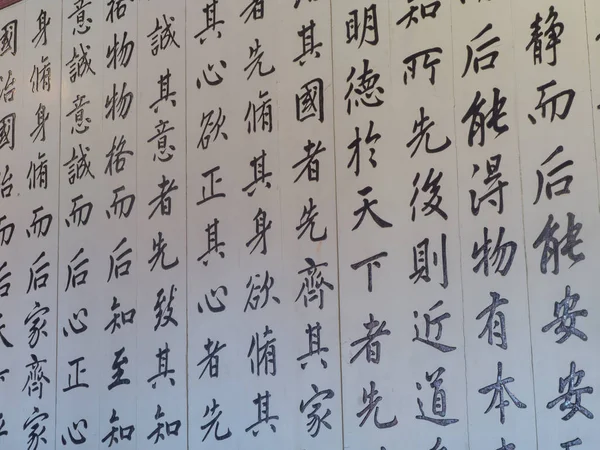 静而后能安安
后能得物有本
知所先後則近道
明德於天下者先
其國者先齊其家
者先脩其身欲脩其
其心欲正其心者先
誠其意者先致其知
格物物格而后知至知
意誠意誠而后心正心
身脩身脩而后家齊家
國治國治而后天下